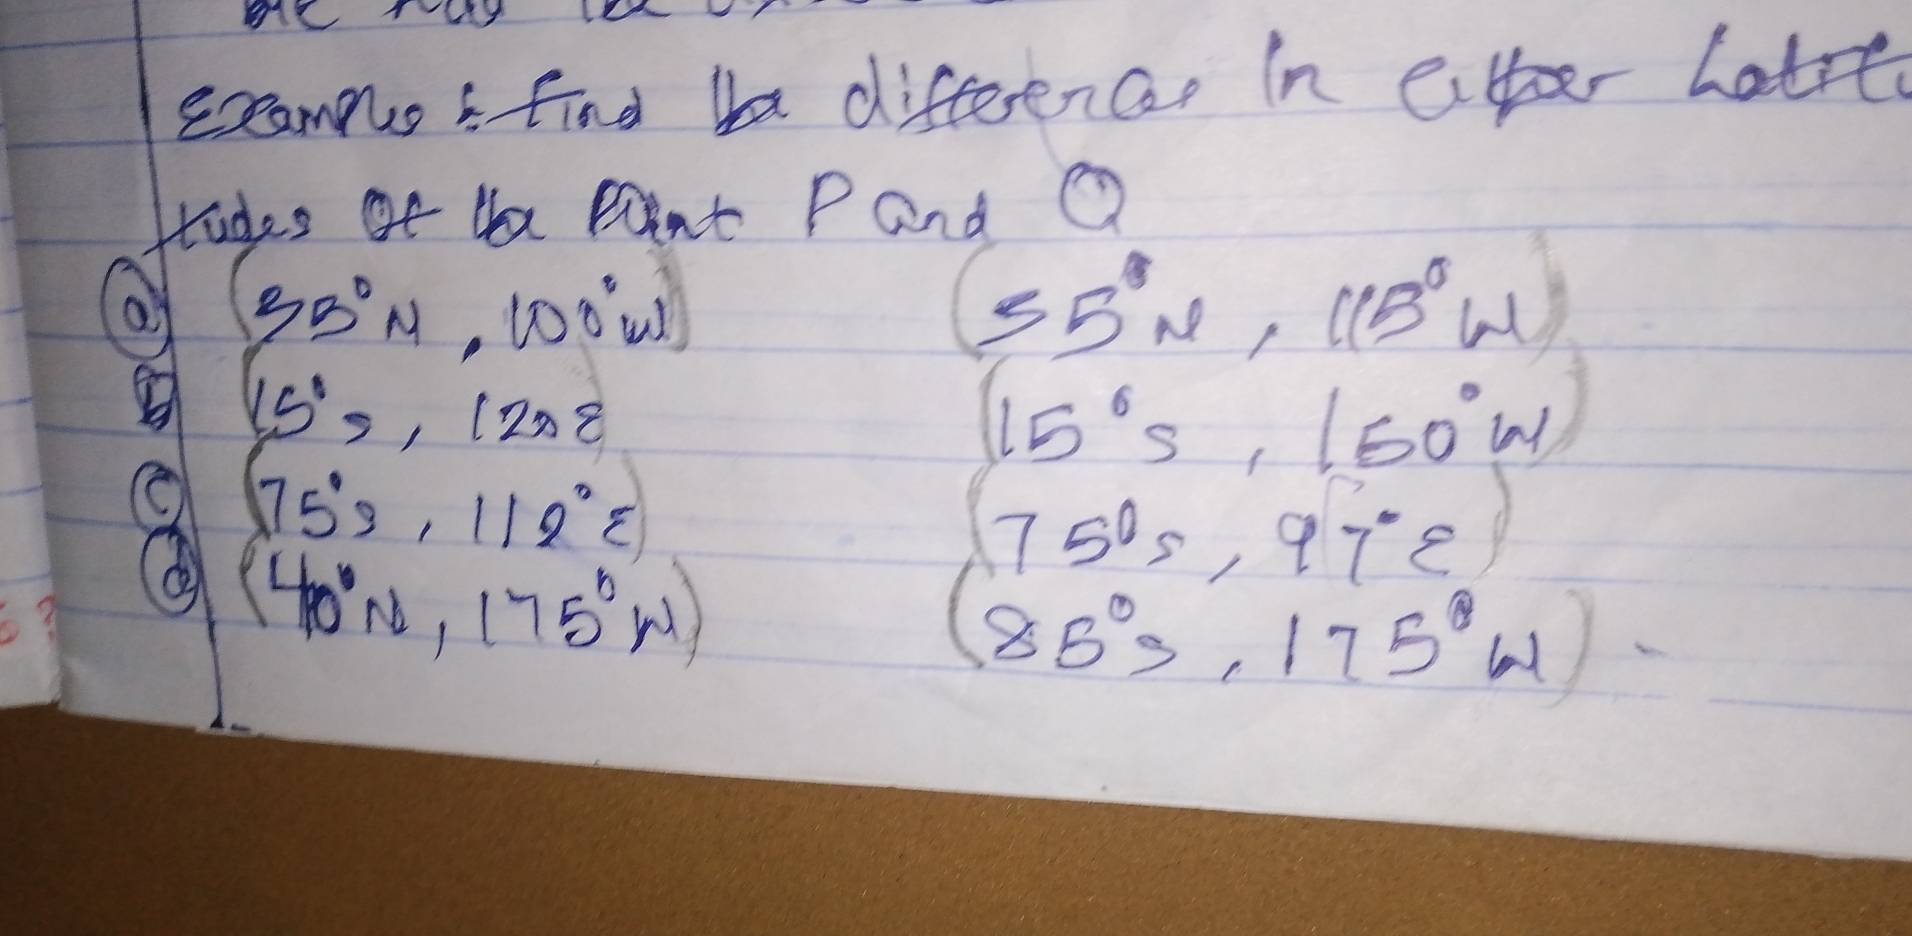 Examples: find the differences in either Lati
tudes of the Point P and Q
(a) (35°N, 100°W) (55°N, 115°W)
(b) (15°S, 12 E) (15°S, 150°W)
(c) (75°S, 112°E) (75°S, 97°E)
(d) (40°N, 175°W) (85°S, 175°W)